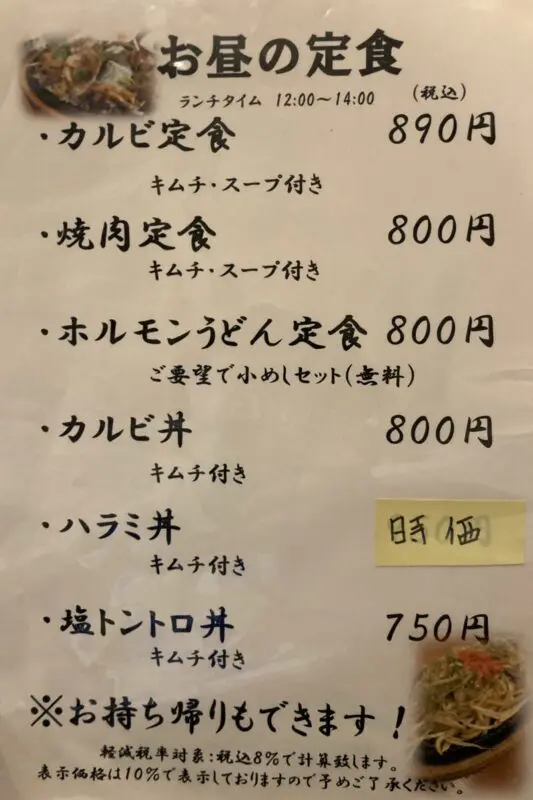 お昼の定食
ランチタイム 12:00~14:00 (税込)
・カルビ定食 890円
キムチ・スープ付き
・焼肉定食 800円
キムチ・スープ付き
・ホルモンうどん定食 800円
ご要望で小めしセット(無料)
・カルビ丼 800円
キムチ付き
・ハラミ丼 時価
キムチ付き
・塩トントロ丼 750円
キムチ付き
※お持ち帰りもできます!
軽減税率対象:税込8%で計算致します。
表示価格は10%で表示しておりますので予めご了承ください。